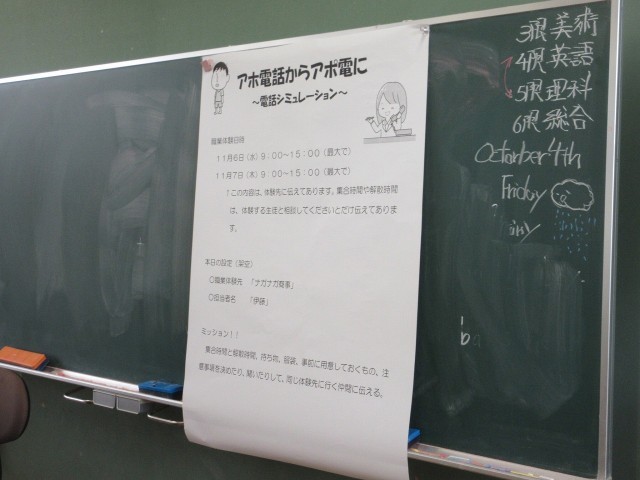 アホ電話からアポ電に
～電話シミュレーション～
職業体験日時
１１月６日（水）９：００～１５：００（最大で）
１１月７日（木）９：００～１５：００（最大で）
！この内容は、体験先に伝えてあります。集合時間や解散時間
は、体験する生徒と相談してくださいとだけ伝えてありま
す。
本日の設定（架空）
〇職業体験先 「ナガナガ商事」
〇担当者名 「伊藤」
ミッション！！
集合時間と解散時間、持ち物、服装、事前に用意しておくもの、注
意事項を決めたり、聞いたりして、同じ体験先に行く仲間に伝える。
3限 美術
4限 英語
5限 理科
6限 総合
Octorber 4th
Friday